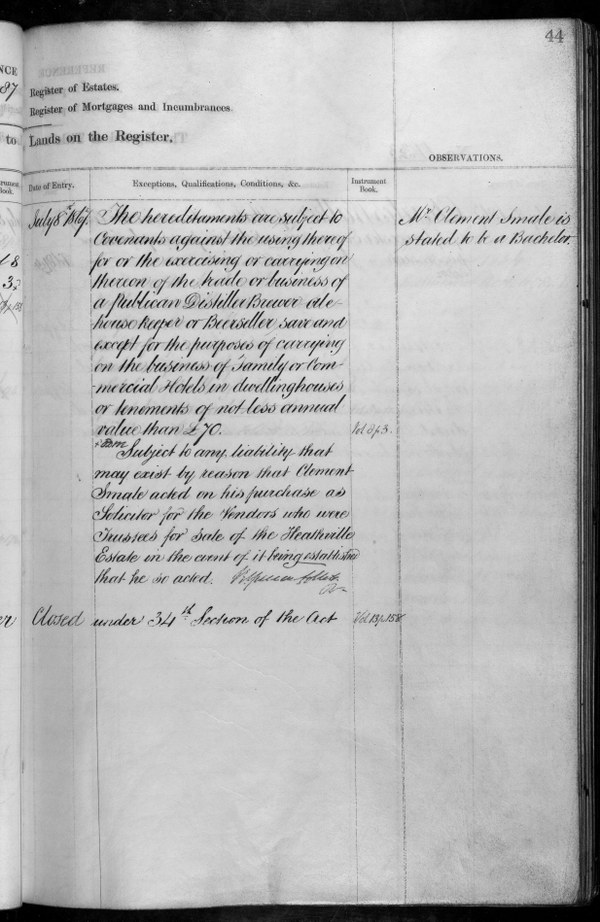 44
NCE
87
Register of Estates.
Register of Mortgages and Incumbrances.
to
Lands on the Register.
OBSERVATIONS.
Date of Entry.
Exceptions, Qualifications, Conditions, &c.
Instrument Book.
July 8th 1867.
The hereditaments are subject to
Covenants against the using thereof
for or the exercising or carrying on
thereon of the trade or business of
a Publican Distiller Brewer ale-
house keeper or Beerseller save and
except for the purposes of carrying
on the business of Family or Com-
-mercial Hotels in dwellinghouses
or tenements of not less annual
value than £70.
Vol 8 p 3.
Subject to any liability that
may exist by reason that Clement
Smale acted on his purchase as
Solicitor for the Vendors who were
Trustees for Sale of the Heathville
Estate in the event of it being established
that he so acted.
Closed
under 34th Section of the Act
Vol 13 p 158
Mr. Clement Smale is
stated to be a Bachelor.